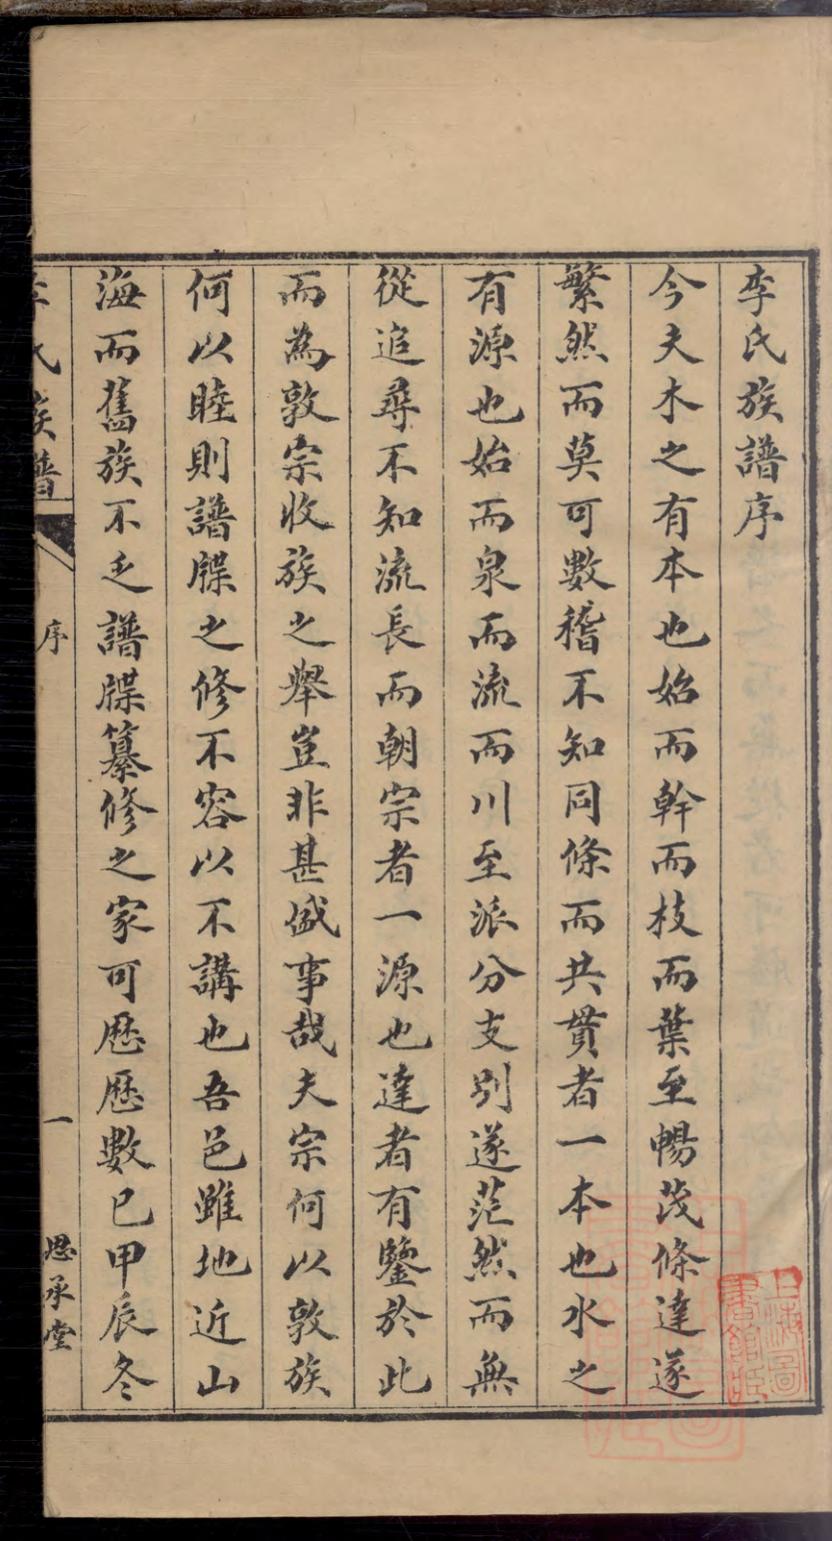 李氏族譜序
今夫木之有本也始而幹而枝而葉至暢茂條達遂
繁然而莫可數稽不知同條而共貫者一本也水之
有源也始而泉而流而川至派分支別遂茫然而無
從追尋不知流長而朝宗者一源也達者有鑒於此
而為敦宗收族之舉豈非甚盛事哉夫宗何以敦族
何以睦則譜牒之修不容以不講也吾邑雖地近山
海而舊族不乏譜牒纂修之家可歷歷數已甲辰冬
李氏族譜
序
一
思承堂
上海圖書館藏